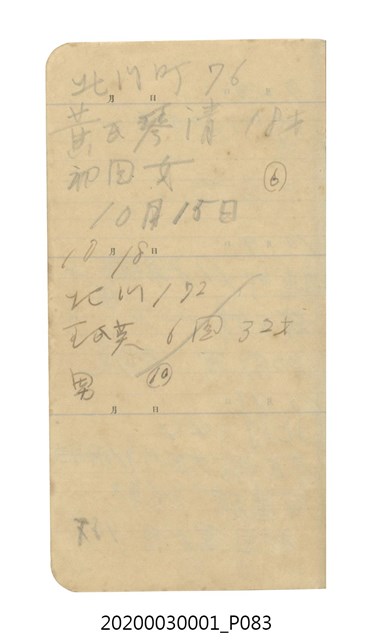 北川町 76
月 日
黃氏琴清 18才
初回女 ⑥
10月15日
10月18日
北川 192
王氏英 6回 32才
男 ⑲
月 日
20200030001_P083